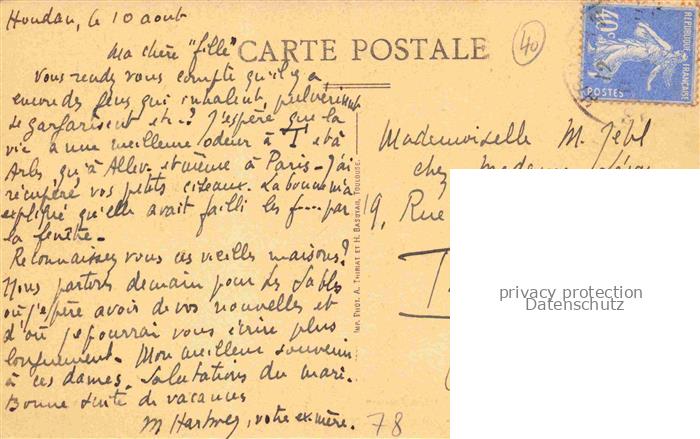 Houdan, le 10 août
Ma chère "fille"
CARTE POSTALE
40
40c
REPUBLIQUE FRANCAISE
POSTES
Vous rendez vous compte qu'il y a
encore des gens qui inhalent, pulvérisent
se gargarisent etc.? J'espère que la
vie a une meilleure odeur à T et à
Arles, qu'à Allev. et même à Paris - J'ai
récupéré vos petits ciseaux. La bonne m'a
expliqué qu'elle avait failli les f.... par
la fenêtre -
Reconnaissez vous ces vieilles maisons?
Nous partons demain pour Les Sables
où j'espère avoir de vos nouvelles et
d'où je pourrai vous écrire plus
longuement. Mon meilleur souvenir
à ces dames. Salutations du mari.
Bonne suite de vacances
votre ex-mère.
78
IMP. PHOT. A. THIRIAT ET H. BASUYAU, TOULOUSE.
Mademoiselle M.
chez Madame
19, Rue
T
privacy protection
Datenschutz